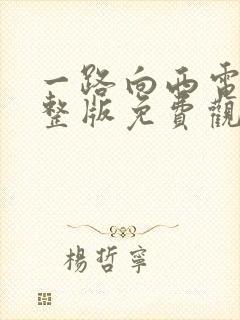 一路向西電
整版免費觀
楊哲寧